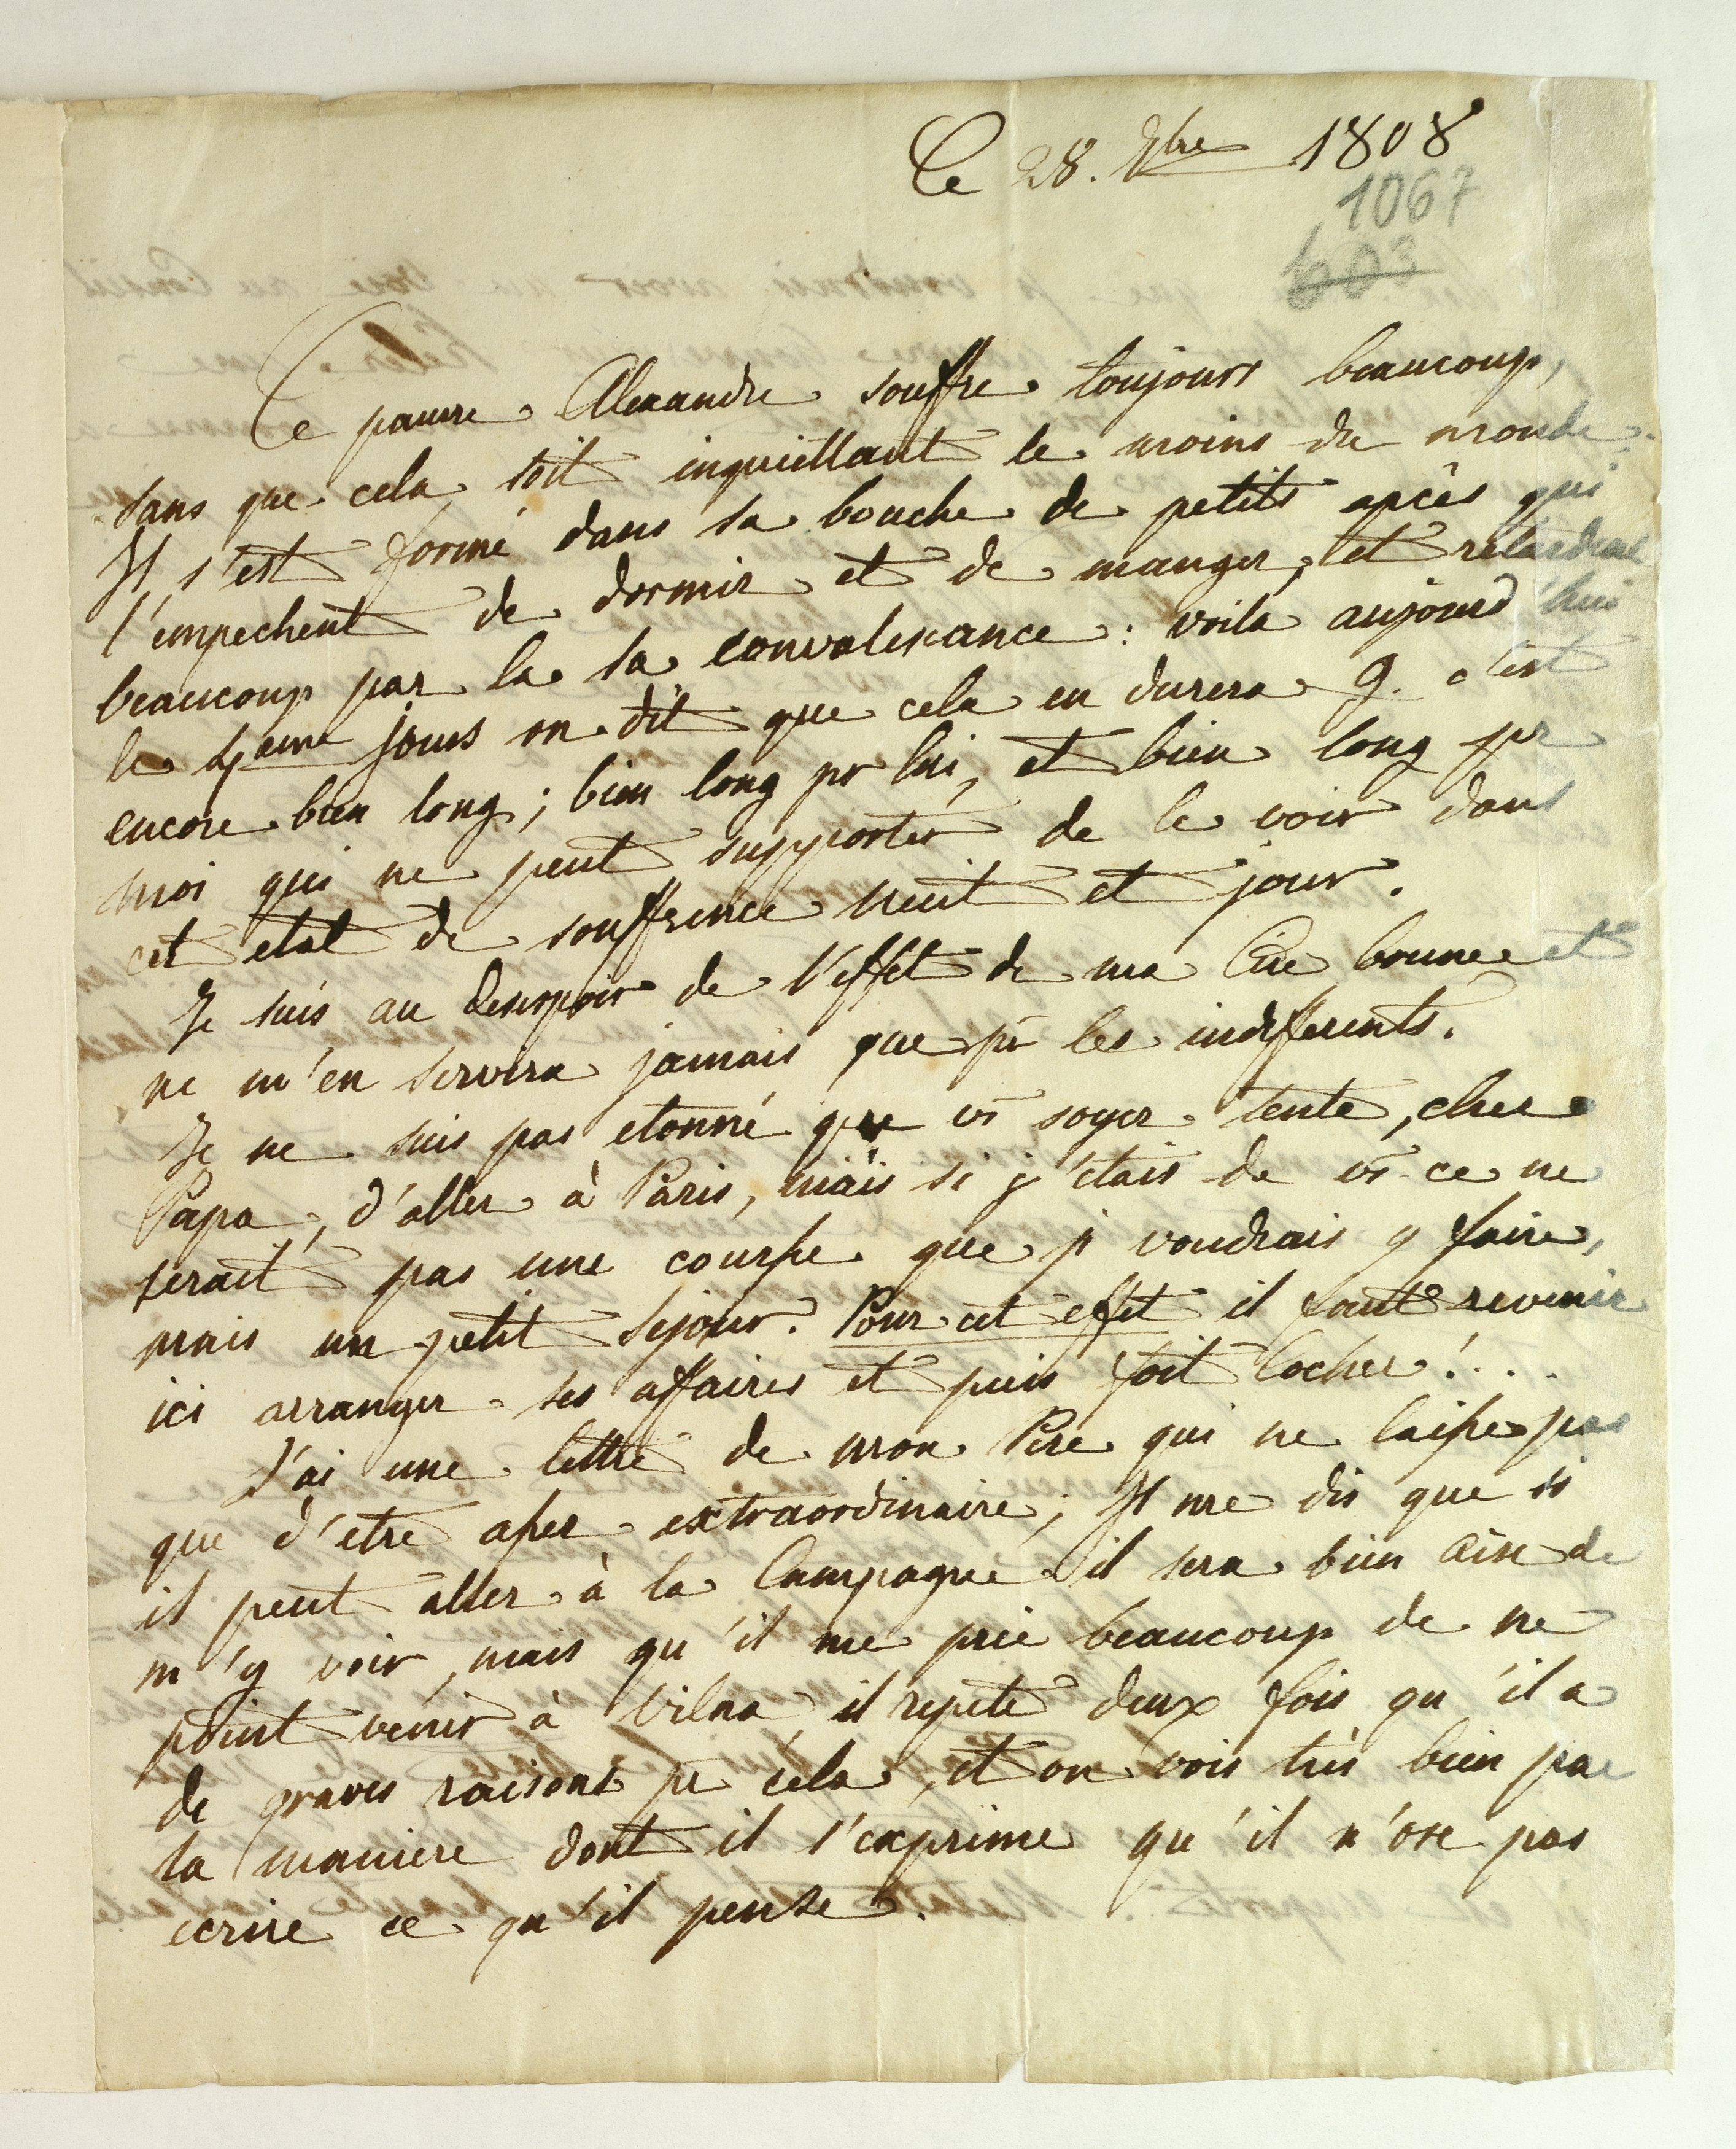 Le 28. 9bre 1808
1067
603
Ce pauvre Alexandre souffre toujours beaucoup,
sans que cela soit inquiettant le moins du monde.
Il s'est formé dans sa bouche de petits apcès qui
l'empechent de dormir et de manger, et retardent
beaucoup par la sa convalescance : voila aujourd'hui
le 4eme jours on dit que cela en durera 9. c'est
encore bien long ; bien long pr lui, et bien long pr
moi qui ne peut supporter de le voir dans
cet etat de souffrence nuit et jour.
Je suis au desespoir de l'effet de ma Cire bonne et
ne m'en servira jamais que pr les indifferents.
Je ne suis pas etonné que vs soyer tenté, cher
Papa, d'aller à Paris, mais si j'etais de vs ce ne
serait pas une course que je voudrais y faire,
mais un petit sejour. Pour cet effet il faut revenir
ici arranger ses affaires et puis foit Cocher ! . . .
J'ai une lettre de mon Père qui ne laisse pas
que d'etre assez extraordinaire ; Il me dis que si
il peut aller à la Campagne il sera bien aise de
m'y voir, mais qu'il me prie beaucoup de ne
point venir à Vilna, il repete deux fois qu'il a
de graves raisons pr cela, et on vois très bien par
la maniere dont il s'exprime qu'il n'ose pas
ecrire ce qu'il pense.